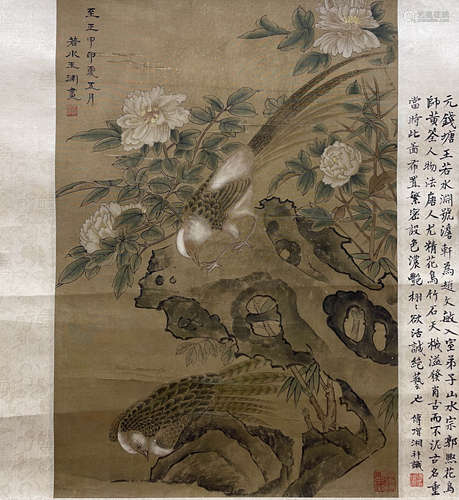 元錢塘王若水淵號澹軒為趙文敏入室弟子山水宗郭熙花鳥
師黃筌人物法唐人尤精花鳥竹石天機溢發肖古而不泥古名重
當時此啚布置繁密設色濃艷栩々欲活誠絕藝也 傅增湘拜識
至正甲申夏五月
若水王淵畫